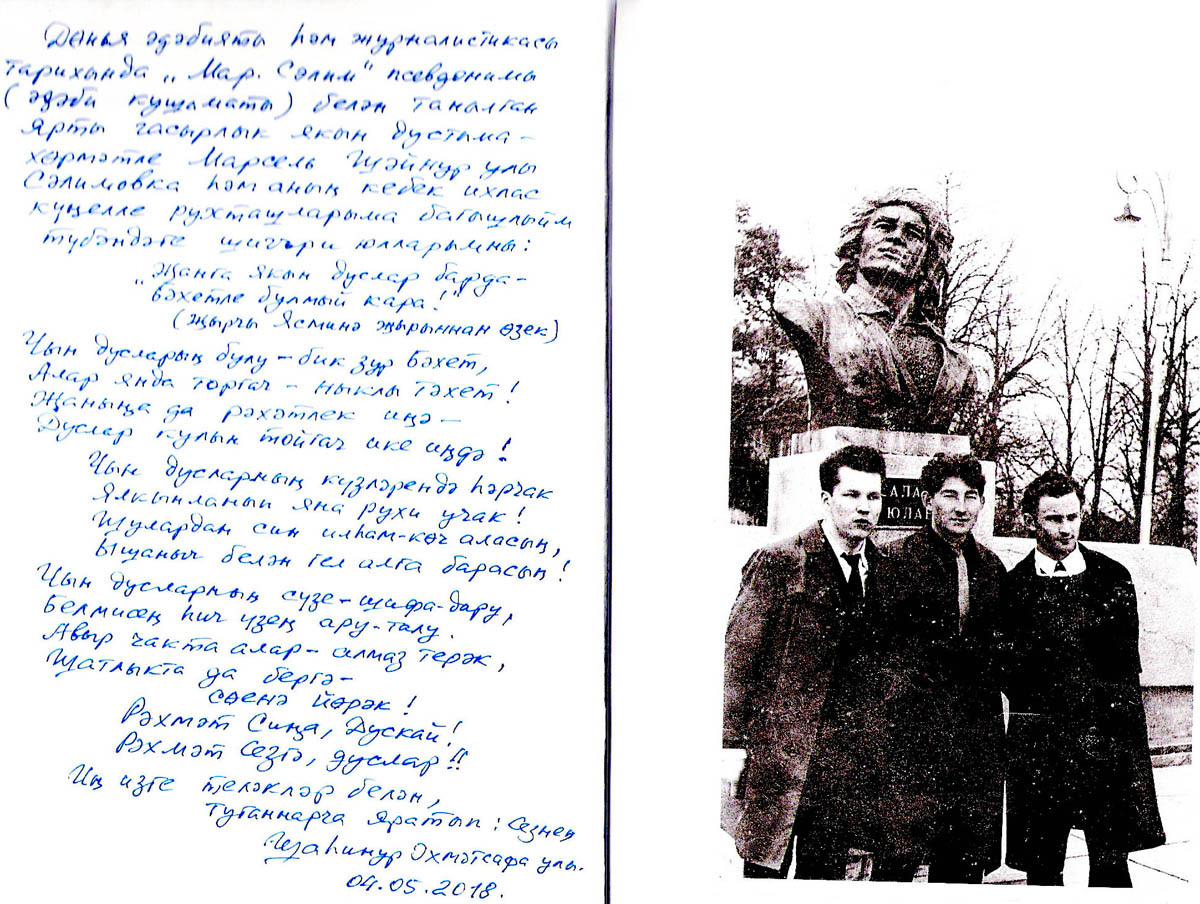 Дөнья әдәбияты һәм журналистикасы
тарихында „Мар. Сәлим“ псевдонимы
(әдәби кушаматы) белән танылган
Ярты гасырлык якын дустыма –
хөрмәтле Марсель Шәйнур улы
Сәлимовка һәм аның кебек ихлас
күңелле рухташларыма багышлыйм
түбәндәге шигъри юлларымны:
„Җанга якын дуслар барда –
бәхетле булмый кара!“
(Җырчы Ясминә җырыннан өзек)
Чын дусларың булу – бик зур бәхет,
Алар янда торгач – ныклы тәхет!
Җаныңа да рәхәтлек иңә –
Дуслар кулын тойгач ике иңдә!
Чын дусларның күзләрендә һәрчак
Ялкынланып яна рухи учак!
Шулардан син илһам-көч аласың,
Ышаныч белән гел алга барасың!
Чын дусларның сүзе – шифа-дару,
Белмисең һич үзең ару-талу.
Авыр чакта алар – алмаз терәк,
Шатлыкта да бергә –
сөенә йөрәк!
Рәхмәт Сиңа, Дускай!
Рәхмәт Сезгә, дуслар!!
Иң изге теләкләр белән,
туганнарча яратып: Сезнең
Шаһинур Әхмәтсафа улы.
04.05.2018.
САЛА
ЮЛА